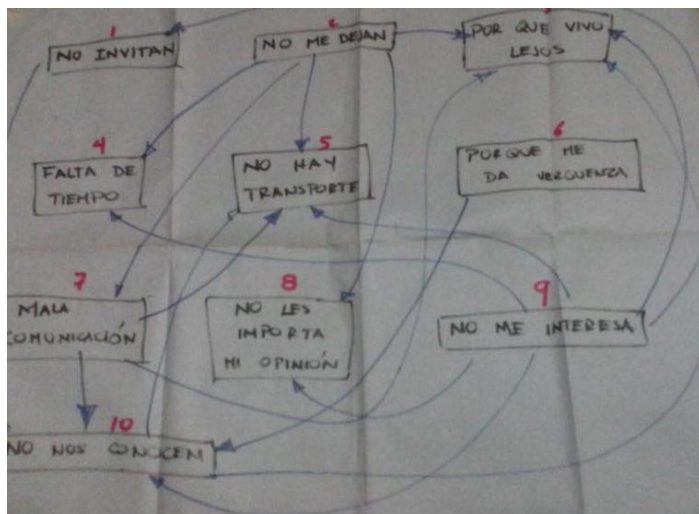 1
NO INVITAN
2
NO ME DEJAN
3
POR QUE VIVO
LEJOS
4
FALTA DE
TIEMPO
5
NO HAY
TRANSPORTE
6
PORQUE ME
DA VERGUENZA
7
MALA
COMUNICACIÓN
8
NO LES
IMPORTA
MI OPINIÓN
9
NO ME INTERESA
10
NO NOS CONOCEN